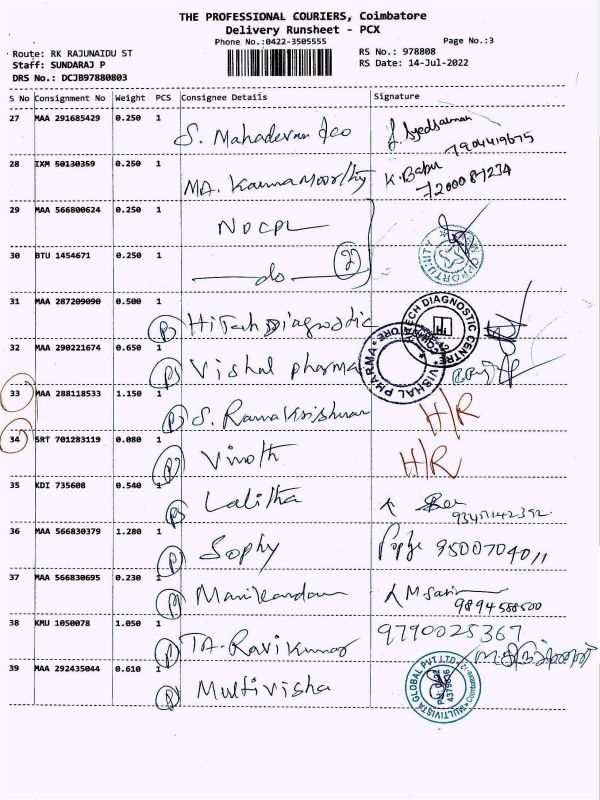 THE PROFESSIONAL COURIERS, Coimbatore
Delivery Runsheet - PCX
Phone No.:0422-3505555 Page No.:3
Route: RK RAJUNAIDU ST RS No.: 978808
Staff: SUNDARAJ P RS Date: 14-Jul-2022
DRS No.: DCJB97880803
S No Consignment No Weight PCS Consignee Details Signature
27 MAA 291685429 0.250 1 S. Mahadevan &co
28 IXM 50130359 0.250 1 MA. Karunamoorthy K. Babu 7200087234
29 MAA 566800624 0.250 1 NOCPL
30 BTU 1454671 0.250 1 do 2 OPPORTUNITY
31 MAA 287209090 0.500 1 P HiTech Diagnostic HITECH DIAGNOSTIC CENTRE Hi
32 MAA 290221674 0.650 1 P Vishal pharma VISHAL PHARMA
33 MAA 288118533 1.150 1 P S. Ramakrishnan H/R
34 SRT 701283119 0.080 1 P Vinoth H/R
35 KDI 735608 0.540 1 P Lalitha
36 MAA 566830379 1.280 1 P Sophy 9500704011
37 MAA 566830695 0.230 1 P Manikandan 9894588500
38 KMU 1050078 1.050 1 P TA. Ravikumar 9790025367
39 MAA 292435044 0.610 1 P Multivisha MULTIVISTA GLOBAL PVT.LTD